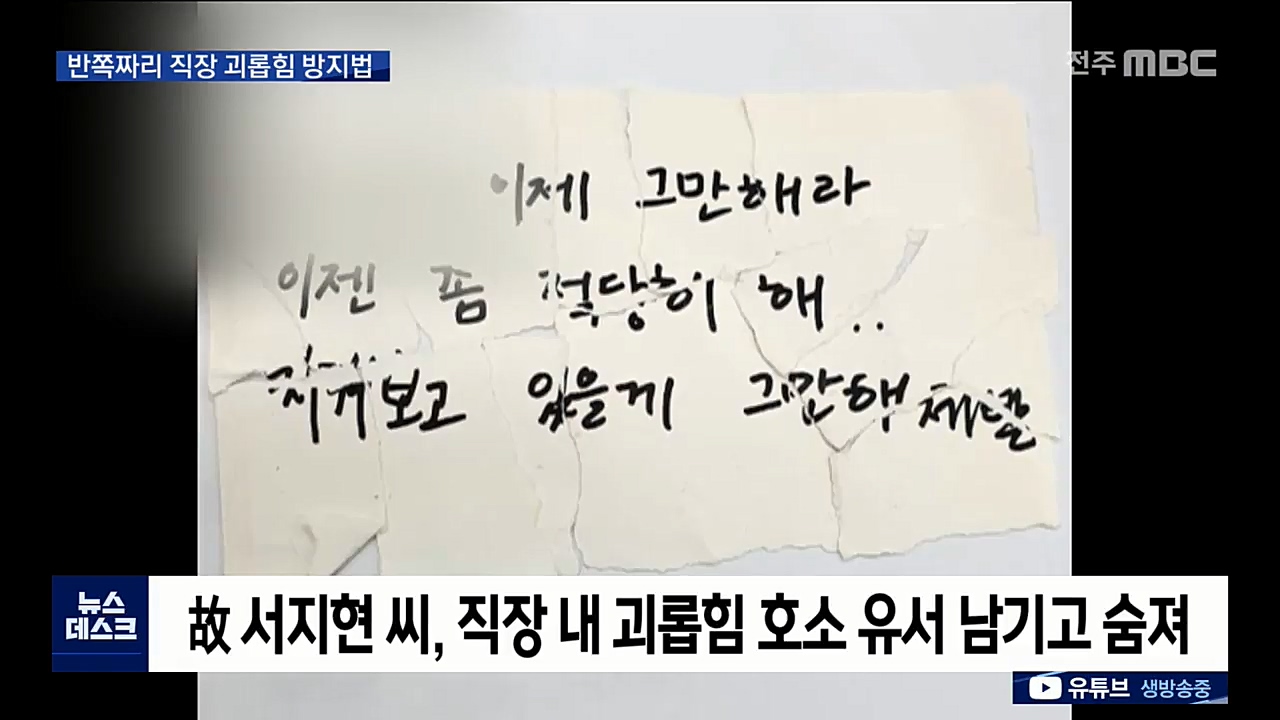 반쪽짜리 직장 괴롭힘 방지법
전주 MBC
이제 그만해라
이젠 좀 적당히 해..
지켜보고 있을게 그만해 제발
뉴스
데스크
故 서지현 씨, 직장 내 괴롭힘 호소 유서 남기고 숨져
유튜브 생방송중